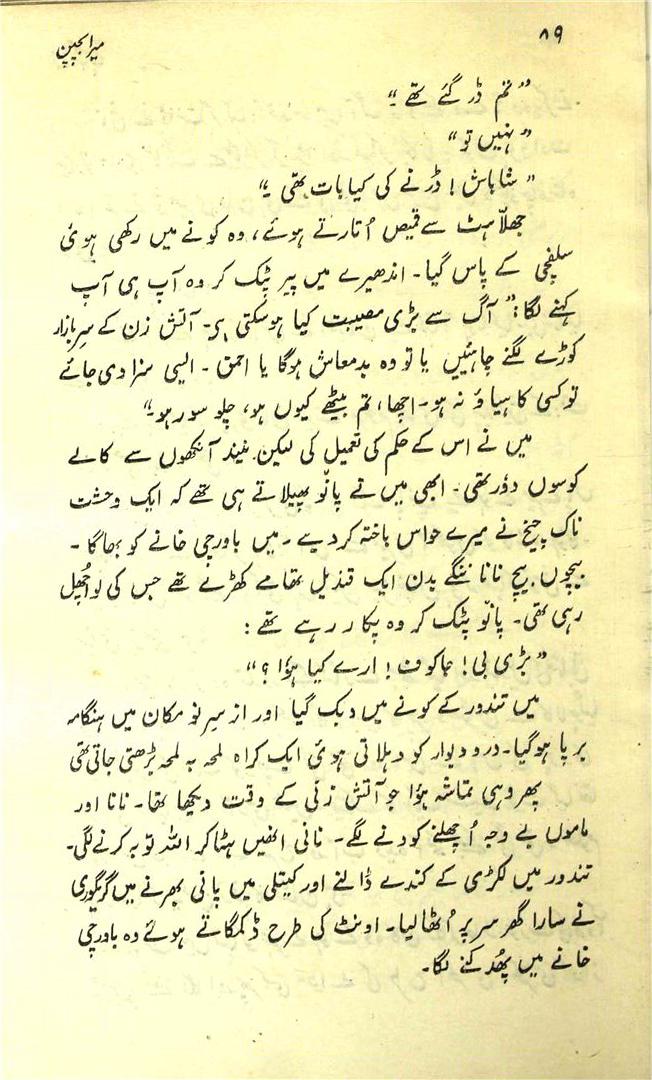 ۸۹
میرا بچپن
”تم ڈر گئے تھے۔“
”نہیں تو“
”شاباش! ڈرنے کی کیا بات تھی۔“
جھلّاہٹ سے قمیص اُتارتے ہوئے، وہ کونے میں رکھی ہوئی
سلفچی کے پاس گیا۔ اندھیرے میں پیر پٹک کر وہ آپ ہی آپ
کہنے لگا: ”آگ سے بڑی مصیبت کیا ہوسکتی ہے۔ آتش زن کے سرِبازار
کوڑے لگنے چاہئیں یا تو وہ بدمعاش ہوگا یا احمق۔ ایسی سزا دی جائے
تو کسی کا ہیاؤ نہ ہو۔ اچھا، تم بیٹھے کیوں ہو، چلو سو رہو۔“
میں نے اس کے حکم کی تعمیل کی لیکن نیند آنکھوں سے کالے
کوسوں دوٗر تھی۔ ابھی میں نے پانْو پھیلائے ہی تھے کہ ایک وحشت
ناک چیخ نے میرے حواس باختہ کر دیے۔ میں باورچی خانے کو بھاگا۔
بیچوں بیچ نانا ننگے بدن ایک قندیل تھامے کھڑے تھے جس کی لو اُچھل
رہی تھی۔ پانْو پٹک کر وہ پکار رہے تھے:
”بڑی بی! جاکوف! ارے کیا ہؤا؟“
میں تندور کے کونے میں دبک گیا اور از سرِ نو مکان میں ہنگامہ
برپا ہوگیا۔ در و دیوار کو دہلاتی ہوئی ایک کراہ لمحہ بہ لمحہ بڑھتی جاتی تھی
پھر وہی تماشہ ہؤا جو آتش زنی کے وقت دیکھا تھا۔ نانا اور
ماموں بے وجہ اُچھلنے کودنے لگے۔ نانی انھیں ہٹاکر اللہ توبہ کرنے لگی۔
تندور میں لکڑی کے کندے ڈالنے اور کیتلی میں پانی بھرنے میں گریگوری
نے سارا گھر سر پر اُٹھا لیا۔ اونٹ کی طرح ڈگمگاتے ہوئے وہ باورچی
خانے میں پُھدکنے لگا۔